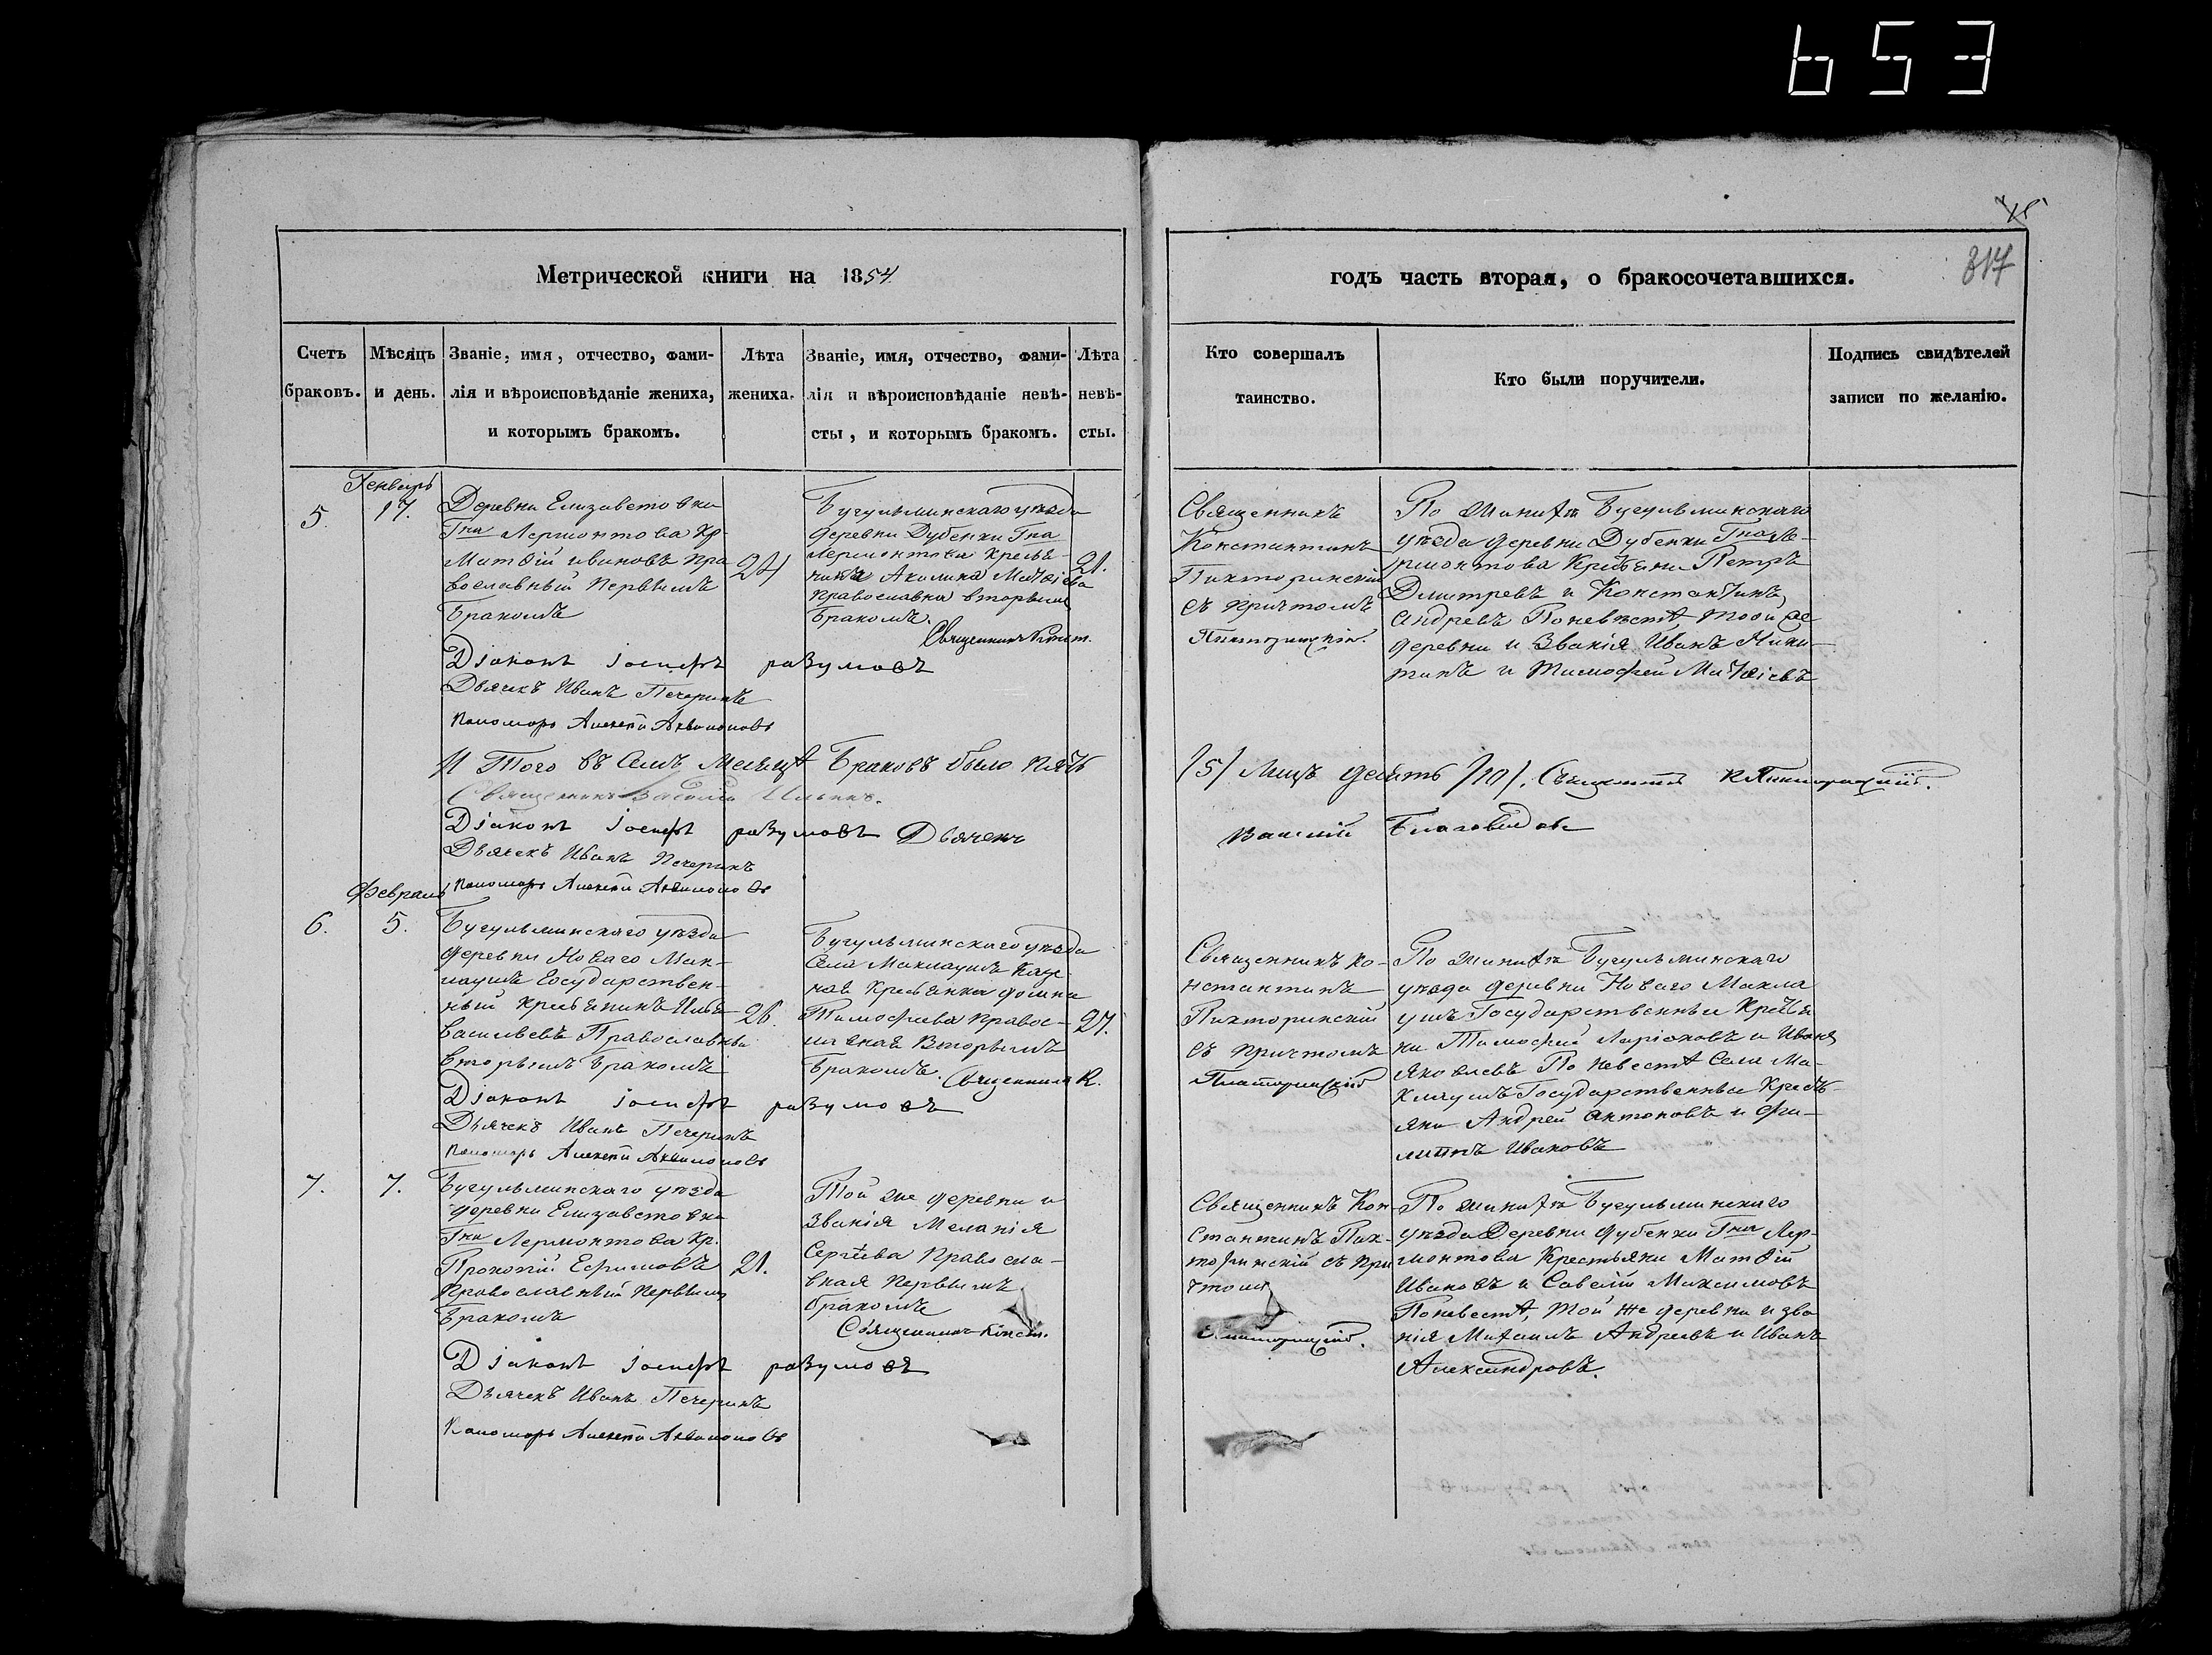 653
45
817
Метрической книги на 1854
годъ часть вторая, о бракосочетавшихся.
Счетъ браковъ.
Мѣсяцъ и день.
Званіе, имя, отчество, фами-
лія и вѣроисповѣданіе жениха,
и которымъ бракомъ.
Лѣта
жениха.
Званіе, имя, отчество, фами-
лія и вѣроисповѣданіе невѣ-
сты, и которымъ бракомъ.
Лѣта
невѣ-
сты.
Кто совершалъ
таинство.
Кто были поручители.
Подпись свидѣтелей
записи по желанію.
Генварь
5.
17.
Деревни Елизаветовка
Гна Лермонтова Кр.
Матѳій ивановъ Пра
вославный Первымъ
Бракомъ
24
Бугульминскаго уѣзда
деревни Дубенки Гна
Лермонтова Кресьь-
нка Акилина Матѳіева
Православна вторымъ
Бракомъ.
21.
Священникъ Конст.
Священникъ
Константинъ
Пикторинскій
съ Причтомъ
По Женихѣ Бугульминскаго
уѣзда деревни Дубенки Гна Ле-
рмонтова Кресьяни Петръ
Дмитревъ и Константинъ
Андревъ По невѣстѣ, той же
деревни и Званія Иванъ Ники-
тинъ и Тимофей Матѳіевъ
Діаконъ іосифъ разумовъ
Дьячекъ Иванъ Печеринъ
Пономарь Алексѣй Аквилоновъ
И Того въ Семъ Месяцѣ Браковъ было пять
/5/ Лицъ десять /10/. Священникъ
Священникъ Василій Ильинъ.
Діаконъ іосифъ разумовъ Дьячекъ
Василій Благовидовъ
Дьячекъ Иванъ Печеринъ
Пономарь Алексѣй Аквилоновъ
Февраль
6.
5.
Бугульминскаго уѣзда
деревни Новаго Мак-
лаушъ Государствен-
ный Кресьянинъ Илья
Васильевъ Православны
вторымъ Бракомъ
26.
Бугульминскаго уѣзда
Села Маклаушъ Казе-
ная Кресьянка Фомина
Тимофеева Правос-
лавная Вторымъ
Бракомъ.
27.
Священникъ К.
Священникъ Ко-
нстантинъ
Пикторинскій
съ Причтомъ
По Женихѣ Бугульминскаго
уѣзда деревни Новаго Макла
ушъ Государственныи Кресья
ни Тимофей Ларіоновъ и Иванъ
Яковлевъ По невестѣ Села Ма-
клаушъ Государственныи Кресь
яни Андрей Антоновъ и Фи-
липпъ Ивановъ
Діаконъ іосифъ разумовъ
Дьячекъ Иванъ Печеринъ
Пономарь Алексѣй Аквилоновъ
7.
7.
Бугульминскаго уѣзда
деревни Елизаветовка
Гна Лермонтова Кр.
Прокопій Ефимовъ
Православный Первымъ
Бракомъ
21.
Той же деревни и
Званія Меланія
Сергѣева Правосла-
вная Первымъ
бракомъ
Священникъ Конст.
Священникъ Кон-
стантинъ Пик-
торинскій съ При
чтомъ
По женихѣ Бугульминскаго
уѣзда Деревни Дубенки Гна Лер-
монтова Крестьяни Матѳій
Ивановъ и Савелій Максимовъ
По невестѣ, той же деревни и зва-
нія Михаилъ Андреевъ и Иванъ
Александровъ.
Діаконъ іосифъ разумовъ
Дьячекъ Иванъ Печеринъ
Пономарь Алексѣй Аквилоновъ